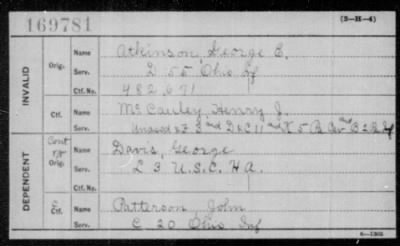 169781
(3-H-4)
INVALID
Orig.
Name Atkinson, George E.
Serv. D 55 Ohio Inf
Ctf. No. 482,671
Ctf.
Name McCauley, Henry J.
Serv. Unassd & F 3 D & C 11 & K 5
DEPENDENT
Cont
Orig.
Name Davis, George
Serv. L 3 U.S.C. H A.
Ctf. No.
C
Ctf.
Name Patterson John
Serv. C 20 Ohio Inf